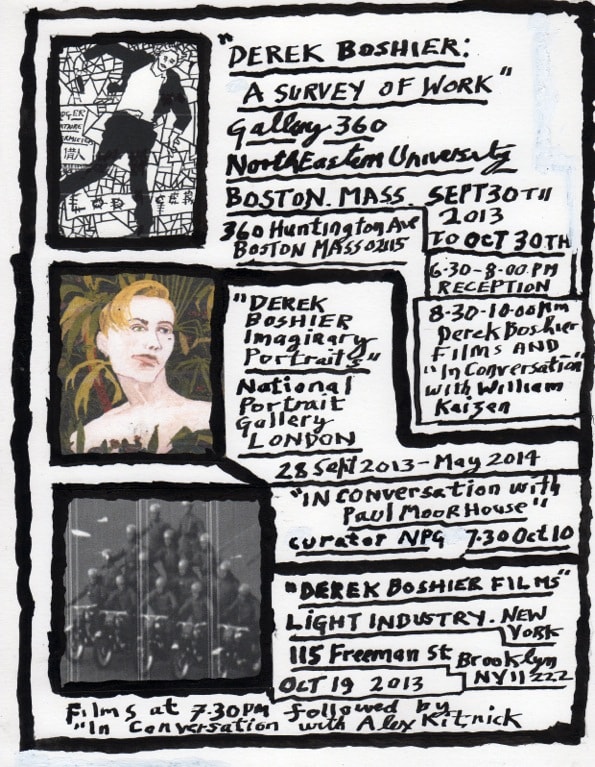 "DEREK BOSHIER:
A SURVEY OF WORK"
Gallery 360
NorthEastern University
BOSTON. MASS. SEPT 30TH
2013
TO OCT 30TH
360 Huntington Ave
BOSTON MASS 02115
6.30-8.00.PM
RECEPTION
8.30-10.00
Derek Boshier
FILMS AND
"In Conversation"
with William
Kaizen
"DEREK
BOSHIER
Imagirary
Portraits"
National
Portrait
Gallery
LONDON
28 Sept 2013-May 2014
"IN Conversation with
Paul MOORHouse"
curator NPG 7.30 Oct 10
"DEREK BOSHIER FILMS"
LIGHT INDUSTRY. NEW
YORK
115 Freeman St Brooklyn
NY11222
OCT 19 2013
Films at 7.30PM followed by
"In Conversation with Alex Kitnick